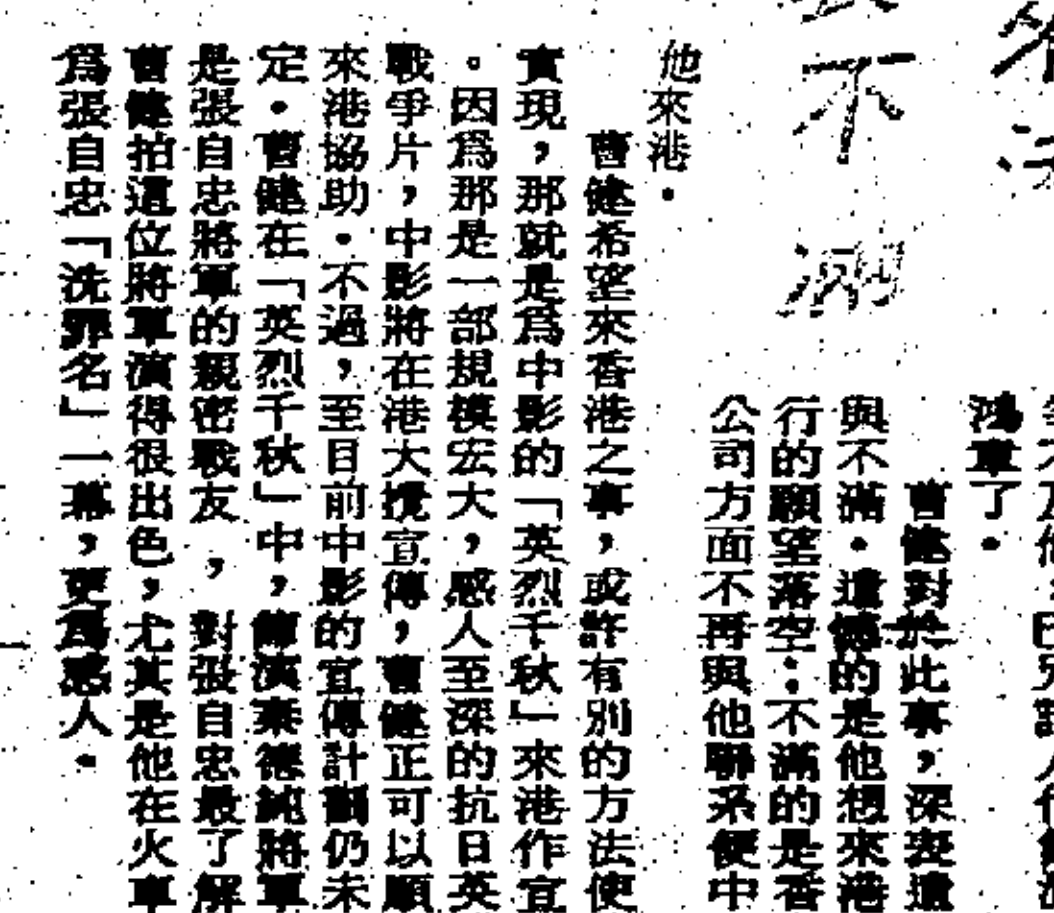 不
滿
鴻章了。
曹健對於此事，深表遺
與不滿。遺憾的是他想來港
行的願望落空；不滿的是香
公司方面不再與他聯系便中
他來港。
曹健希望來香港之事，或許有別的方法使
實現，那就是爲中影的「英烈千秋」來港作宣
。因爲那是一部規模宏大，感人至深的抗日英
戰爭片，中影將在港大攪宣傳，曹健正可以順
來港協助。不過，至目前中影的宣傳計劃仍未
定。曹健在「英烈千秋」中，飾演秦德純將軍
是張自忠將軍的親密戰友，對張自忠最了解
曹健拍這位將軍演得很出色，尤其是他在火車
爲張自忠「洗罪名」一幕，更爲感人。